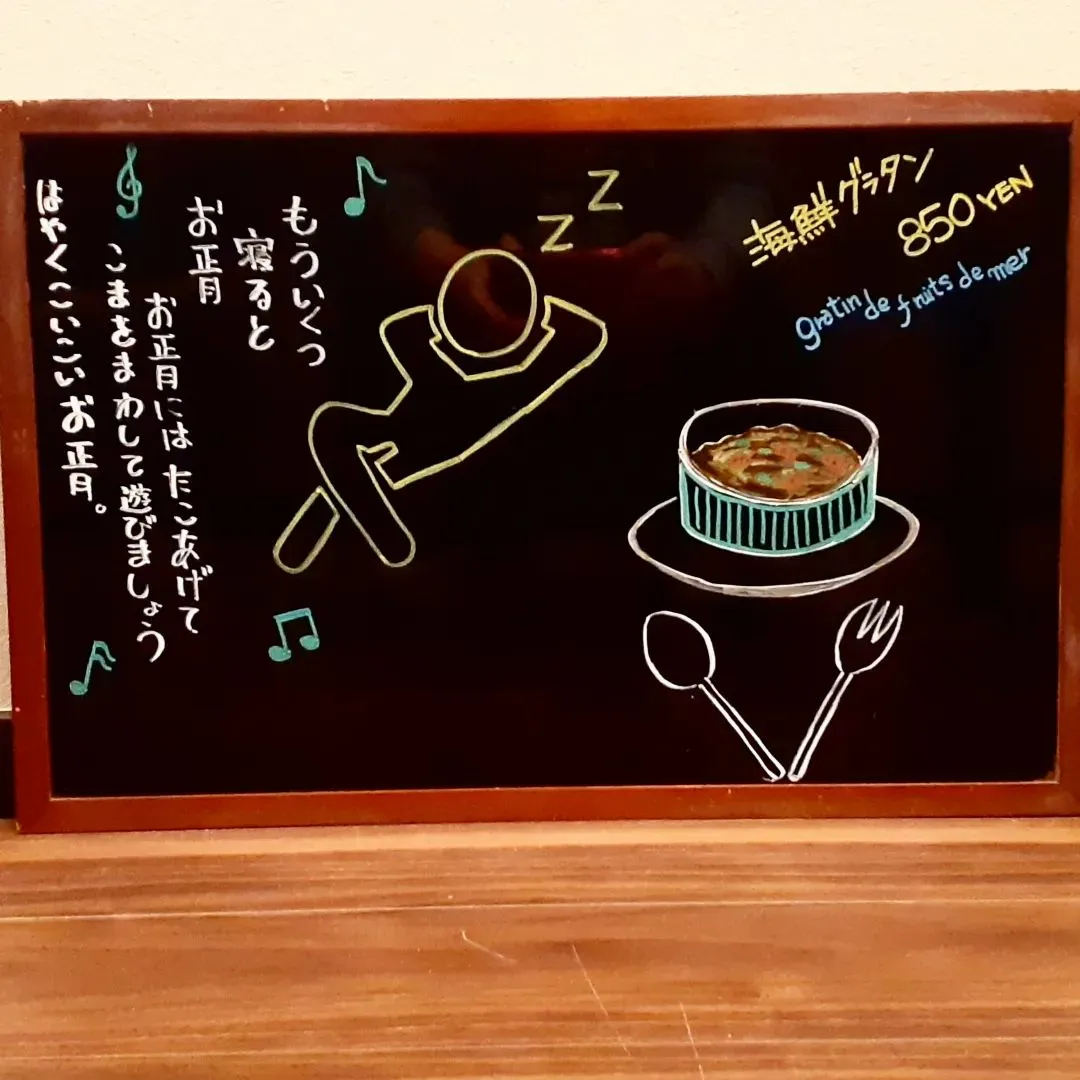 もういくつ
寝ると
お正月
お正月には たこあげて
こまをまわして遊びましょう
はやくこいこいお正月。
Z
Z
海鮮グラタン
850YEN
gratin de fruits de mer